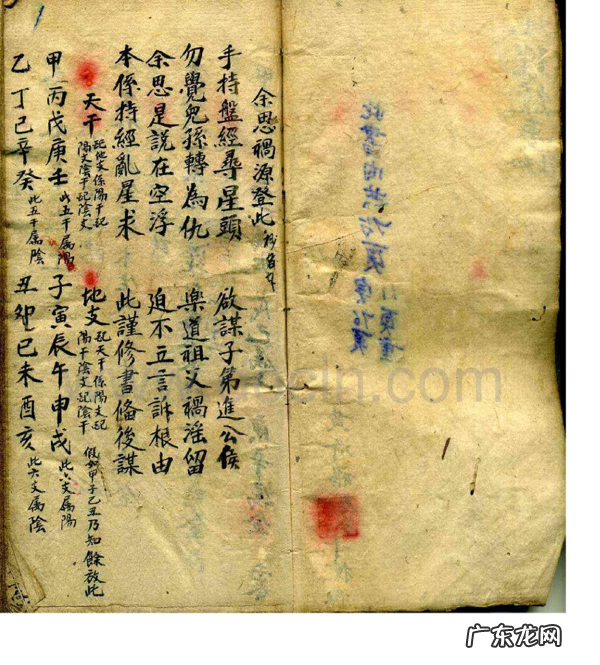 此書由
余思禍源登此
手持盤經尋星頭 欲謀子第進公侯
勿覺兒孫轉為仇 樂道祖父禍滛留
余思是說在空浮 迫不立言訴根由
本係持經亂星求 此謹修書俻後謀
天干 配地支係陽干配陽支陰干配陰支 地支 配天干係陽支配陽干陰支配陰干 假如甲子乙丑乃知餘放此
甲丙戊庚壬 此五干属陽 子寅辰午申戌 此六支属陽
乙丁己辛癸 此五干属陰 丑卯巳未酉亥 此六支属陰
广东龙网